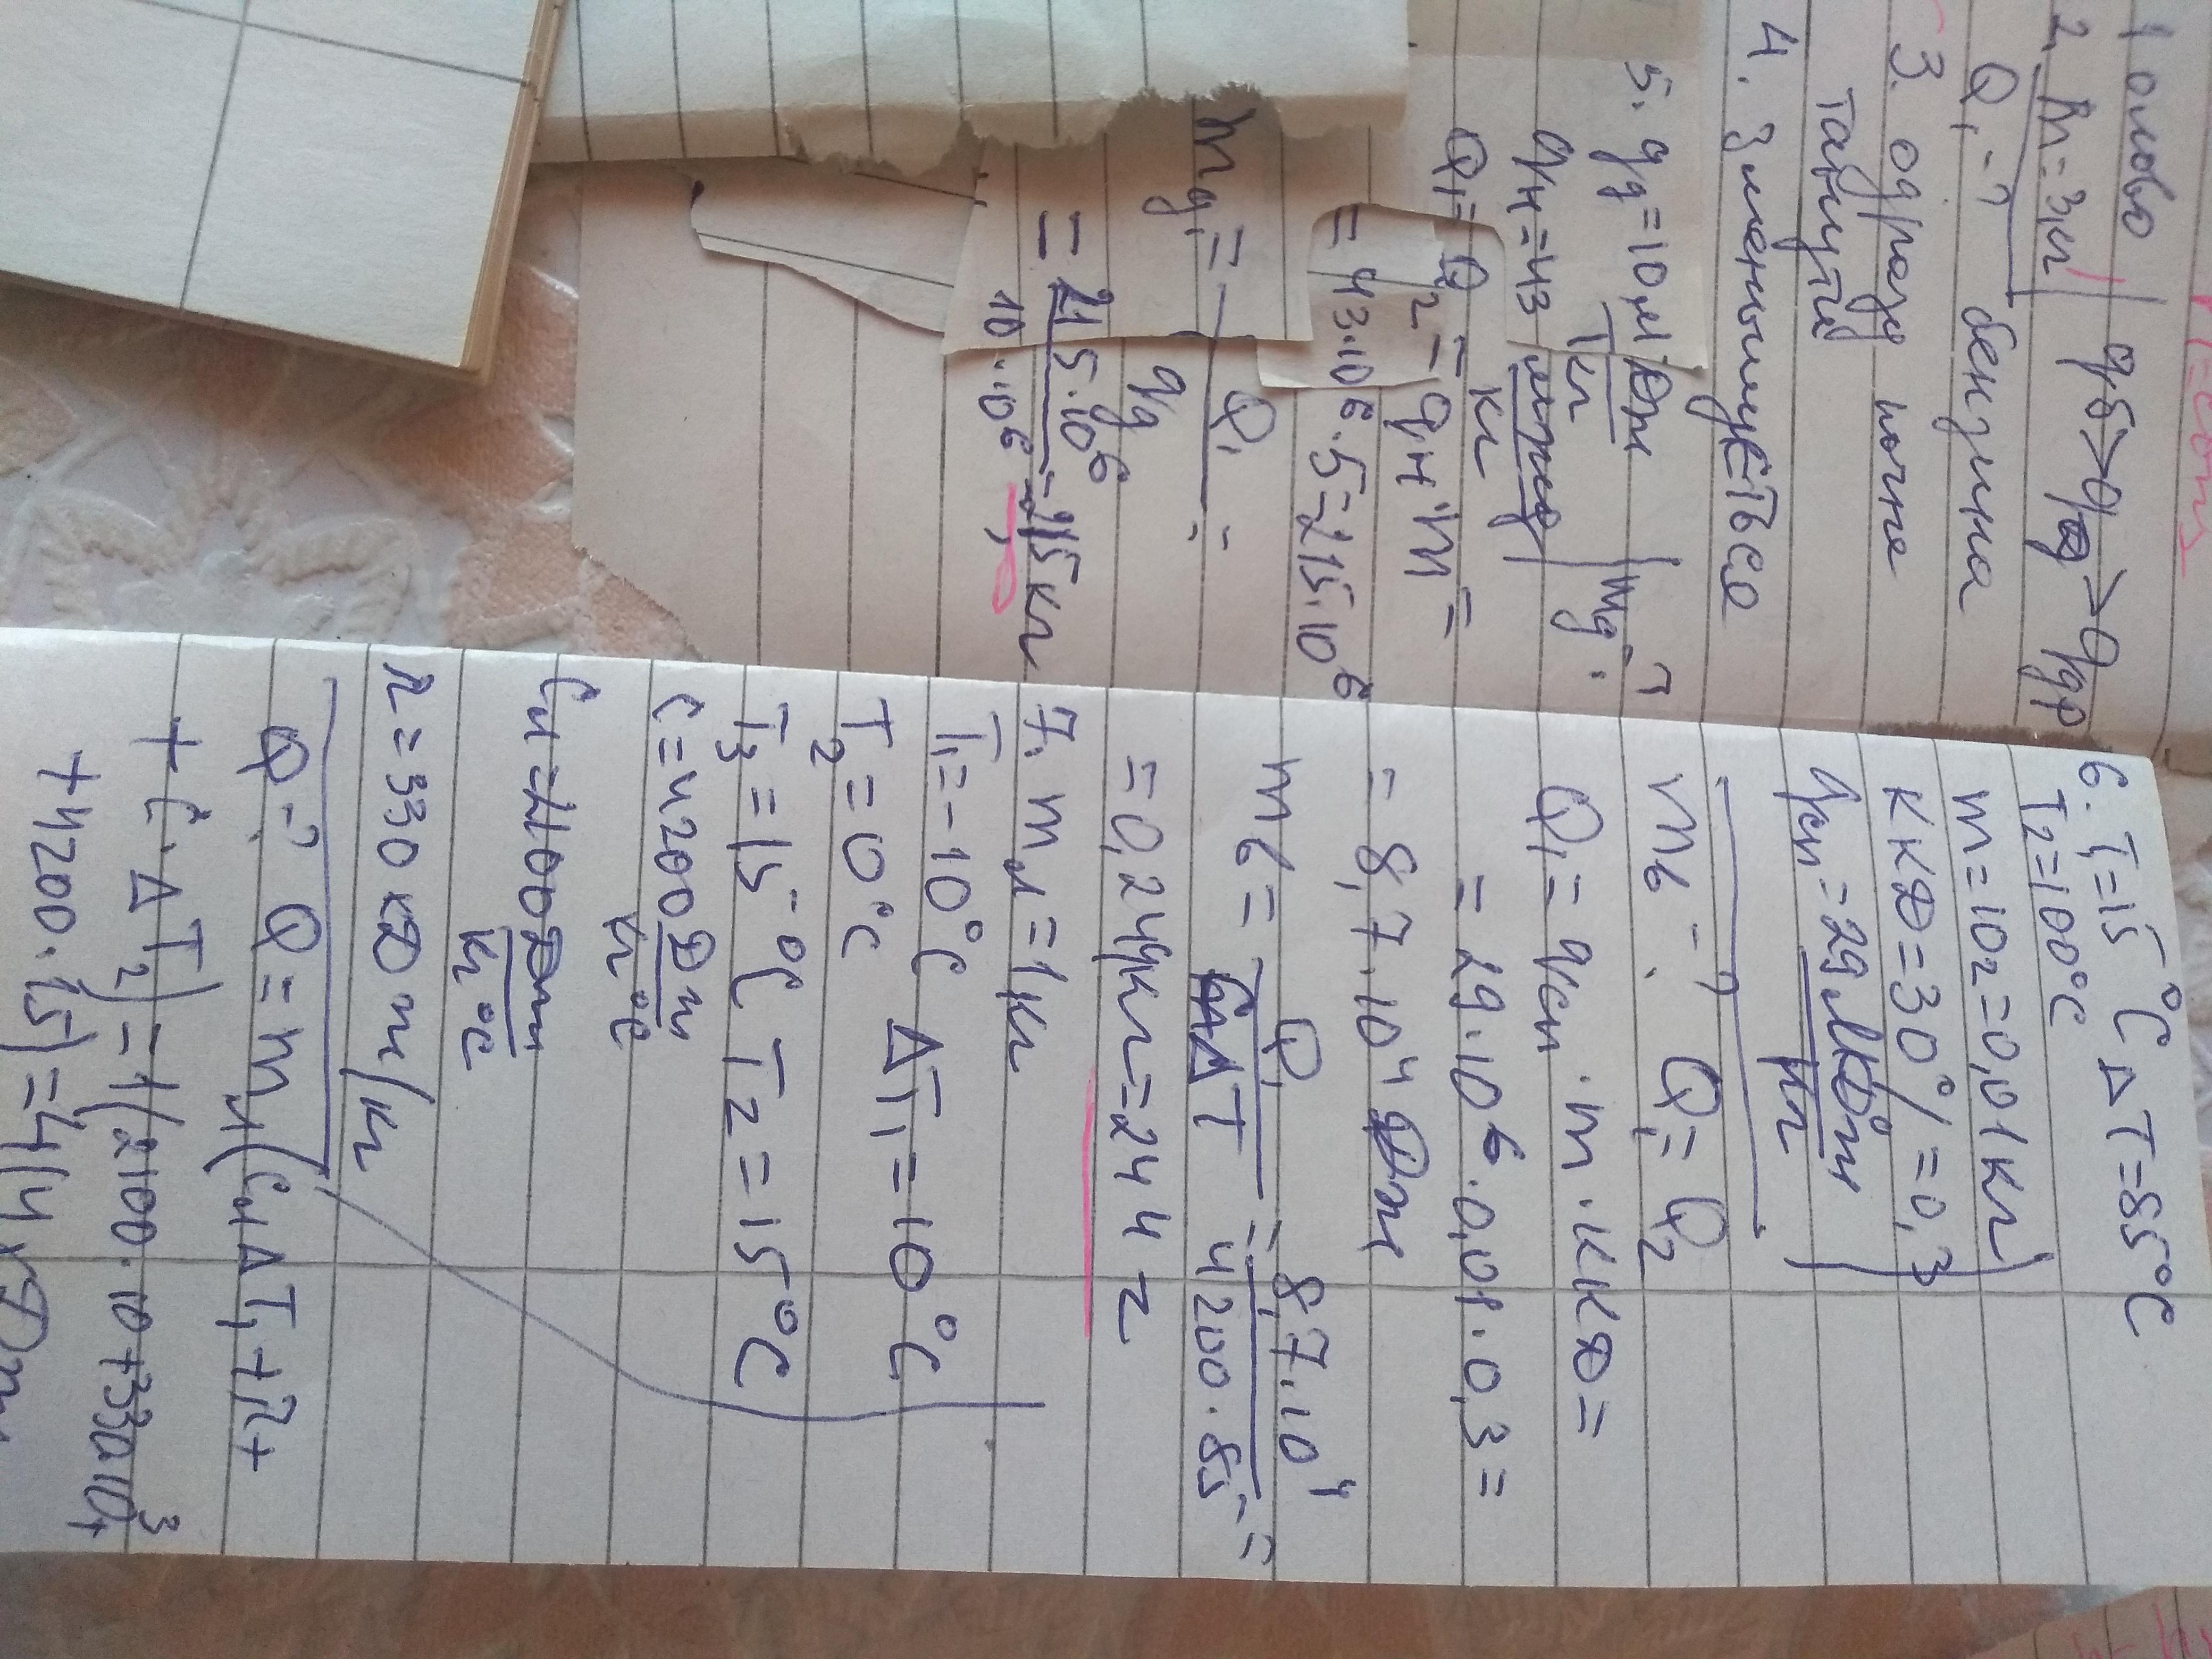 1 олово
2. m=3кг | qб>qд>qдр
Q1-? бензина
3. одразу почне
танути
4. ЗменшуЕТЬСЯ
5. qд=10 МДж/кг | mд-?
qн=43 МДж/кг
Q1=Q2=qн·m=
=43·10⁶·5=215·10⁶
mд=Q1/qд=
=215·10⁶/10·10⁶=21,5 кг
6. T1=15°C ΔT=85°C
T2=100°C
m=10г=0,01кг
ККД=30%=0,3
qсп=29МДж/кг
mв-? Q1=Q2
Q1=qсп·m·ККД=
=29·10⁶·0,01·0,3=
=8,7·10⁴Дж
mв=Q1/cΔT=8,7·10⁴/4200·85=
=0,244кг=244г
7. mл=1кг
T1=-10°C ΔT1=10°C
T2=0°C
T3=15°C T2=15°C
c=4200Дж/кг°C
cл=2100Дж/кг°C
λ=330кДж/кг
Q-? Q=mл(cлΔT1+λ+
+c·ΔT2)=1(2100·10+330·10³+
+4200·15)=414кДж